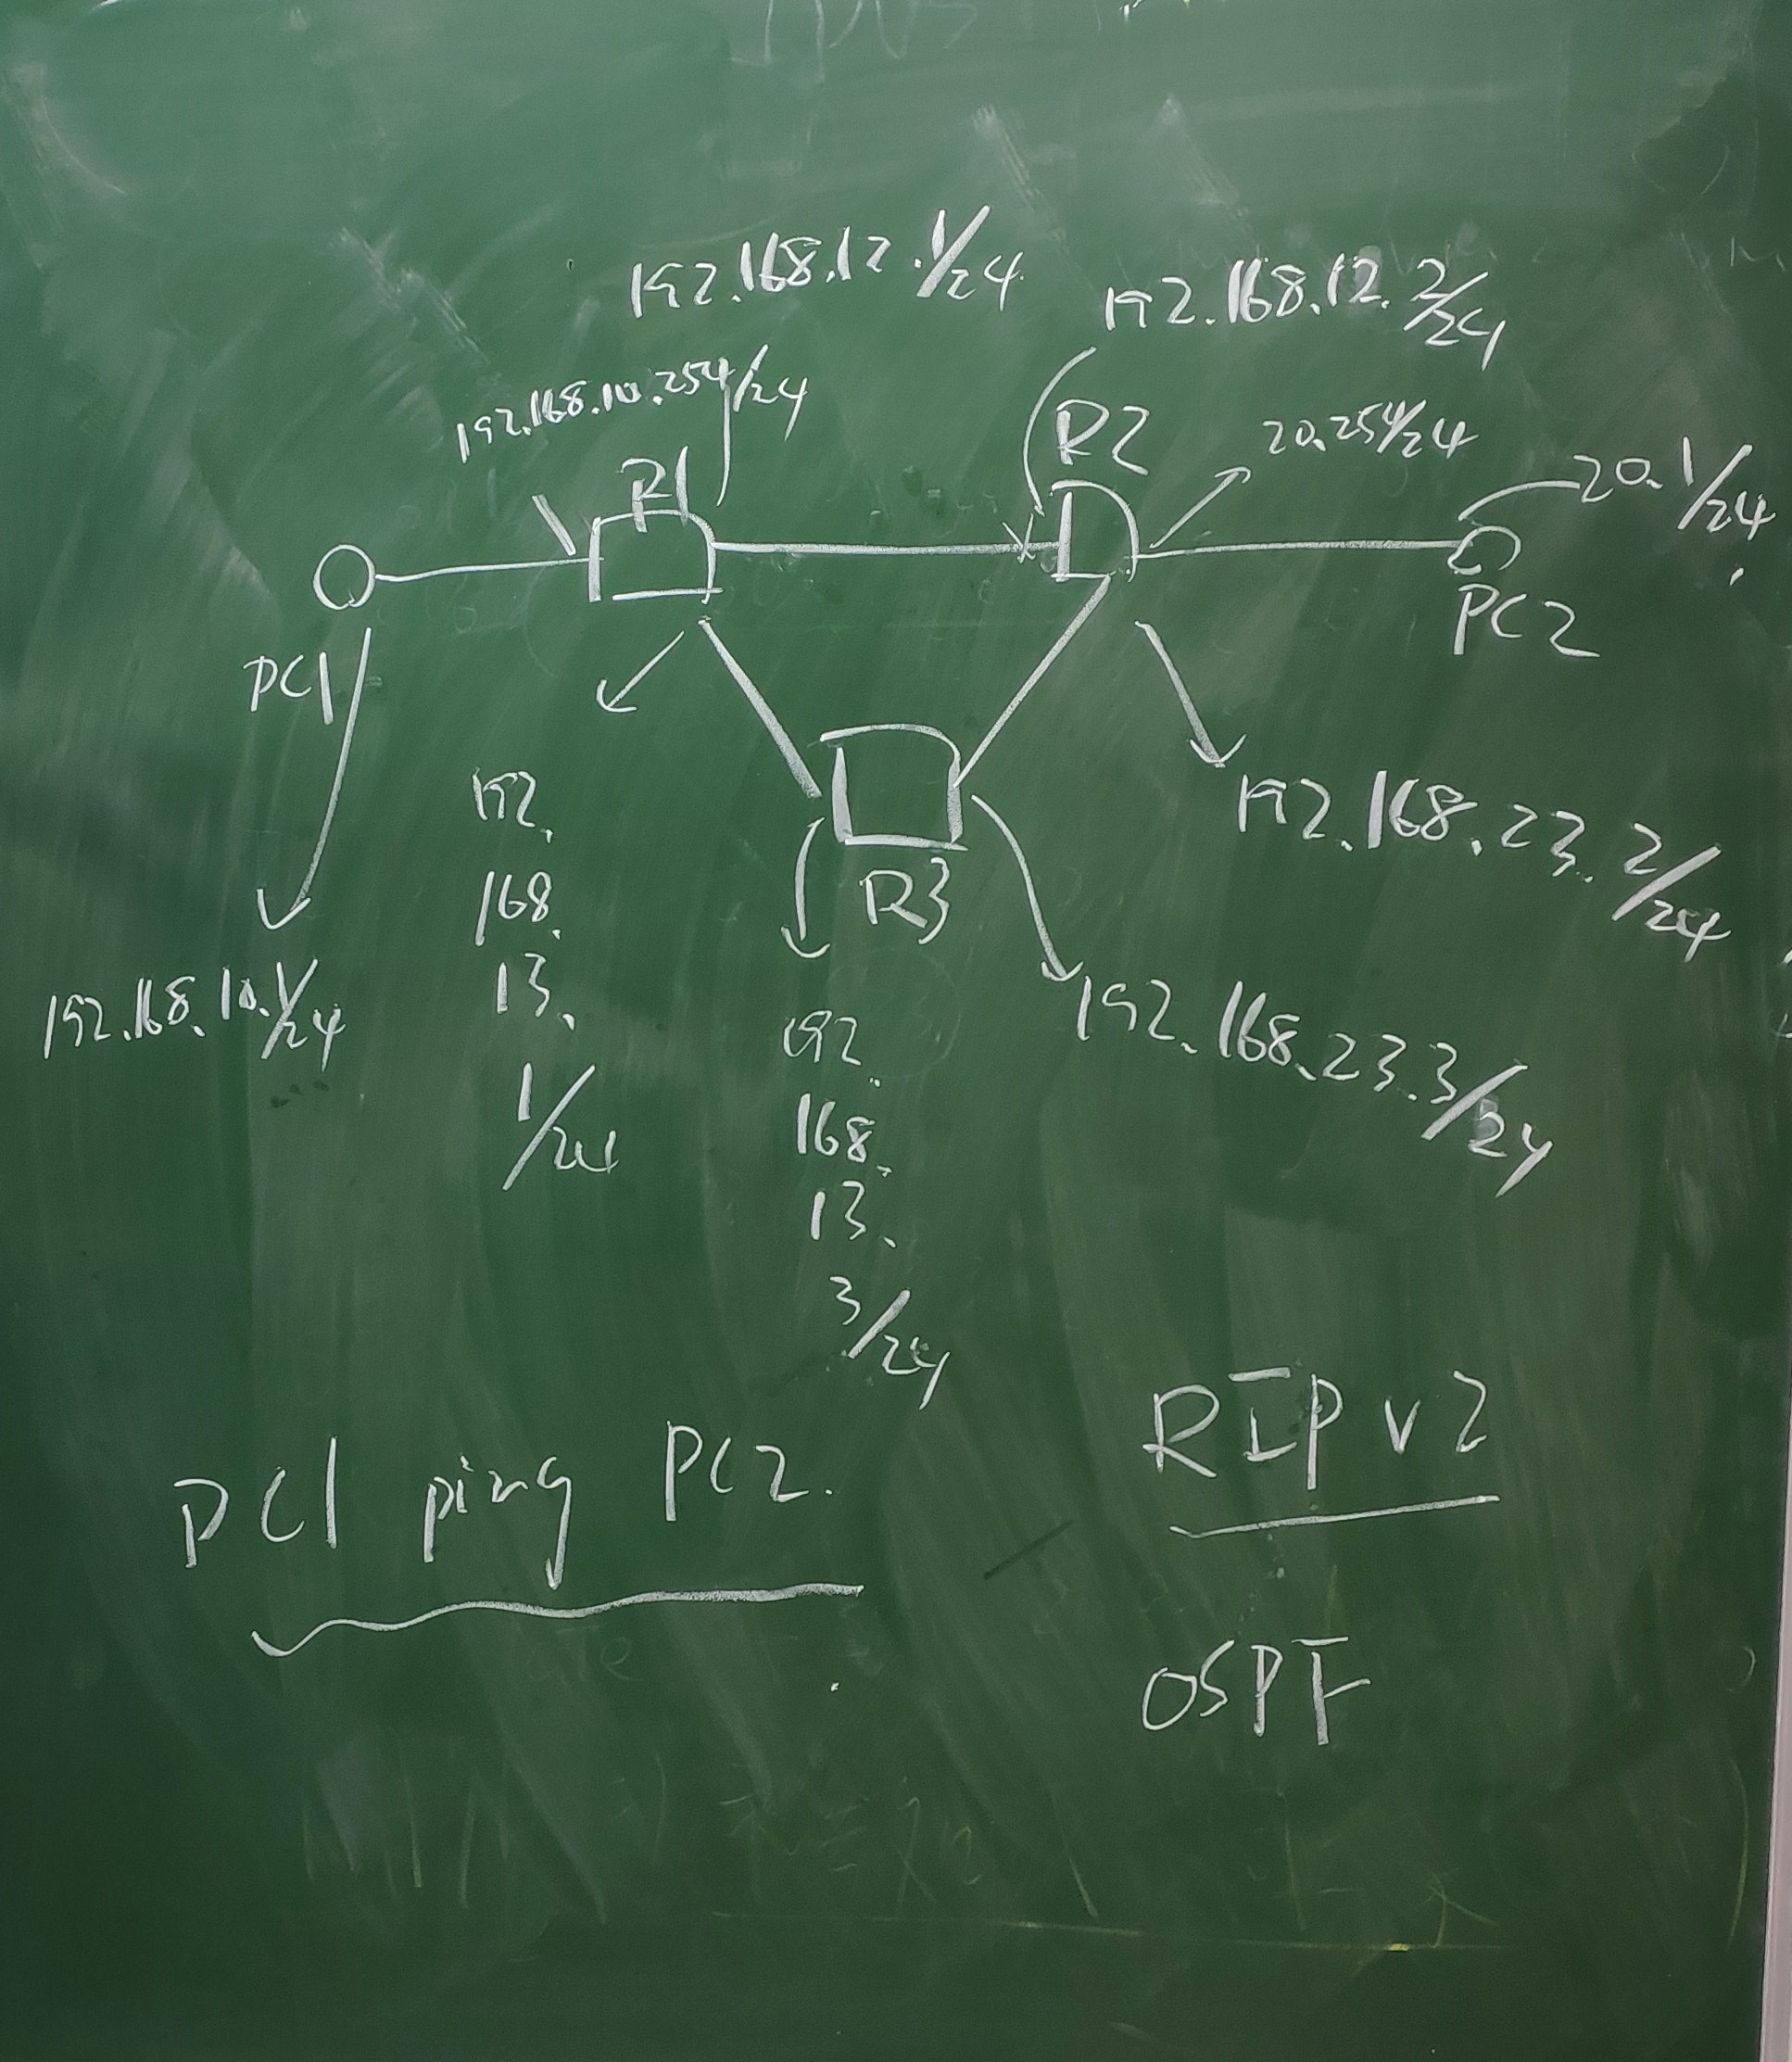 192.168.12.1/24
192.168.12.2/24
192.168.10.254/24
R1
R2
20.254/24
20.1/24
PC1
PC2
192.168.10.1/24
192.
168.
13.
1/24
R3
192.
168.
13.
3/24
192.168.23.2/24
192.168.23.3/24
PC1 ping PC2.
RIPv2
OSPF